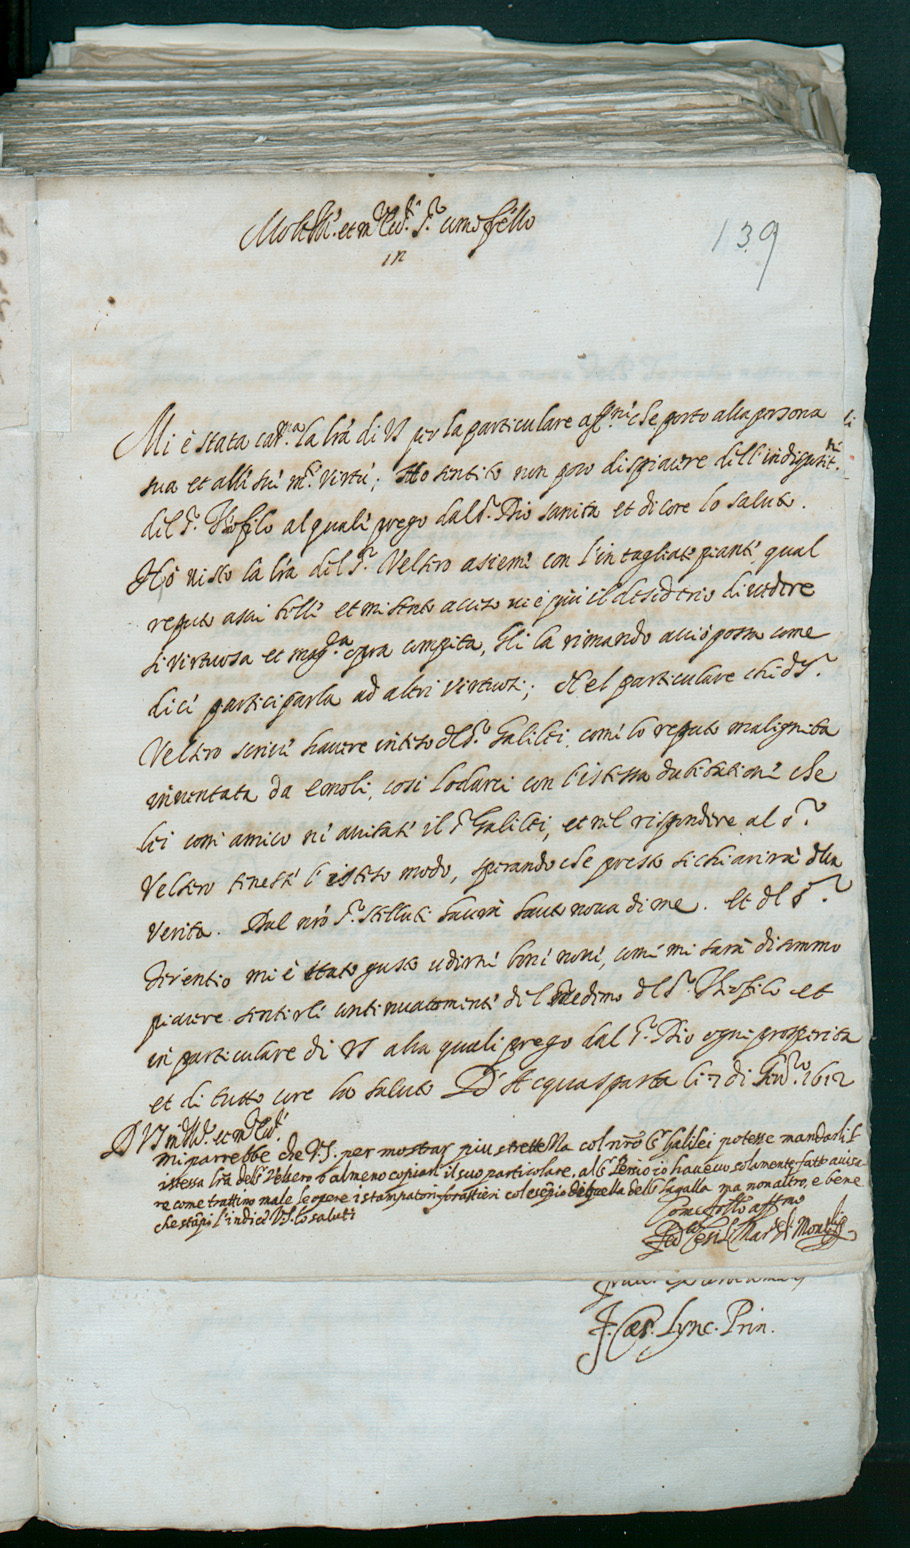 Molt Ill.e et m.to Ecc.te S.r como fr̃ello
in
139
Mi è stata car.ma la lrã di VS per la particulare aff.ne che porto alla persona
sua et alle sue m.te virtù; Ho sentito non poco dispiacere dell'indispositne
del S.r Theofilo al quale prego dal S.r Dio sanita et di core lo saluto.
Hò visto la lrã del S.r Velsero assieme con l'intagliate piante, qual
reputo assai belle et mi sento acceso vie più il desiderio di vedere
si virtuosa et mag.ca opra compita, gli la rimando acciò possa come
dice participarla ad altri virtuosi; Nel particulare che d.o S.r
Velsero scrive havere inteso del S.r Galilei, come lo reputo malignita
inventata da emoli, cosi lodarei con l'istessa dubitatione che
lei come amico ne avisate il S.r Galilei, et nel rispondere al S.r
Velsero tenesse l'istesso modo, sperando che presto si chiarirà della
verita. Dal nrõ S.r Stelluti haverà haute nova di me. et del S.r
Terentio mi è stato gusto udirne bone nove, come mi sarà di sommo
piacere sentirle continuatamente del medemo del S.r Theofilo et
in particulare di VS alla quale prego dal S.r Dio ogni prosperita
et di tutto core la saluto D'Acquasparta li 7 di Gen.ro 1612
D VS m.to Ill.e et m.to Ecc.te
Mi parrebbe che V.S. per mostrar piu strettezza col nrõ S.r Galilei potesse mandarli l'
istessa lrã del S.r Velsero ò almeno copiarli il suo particolare, al S.r Persio io havevo solamente fatto avisa-
re come trattino male le opere i stampatori forastieri col esempio di quella del S.r Lagalla ma non altro, e bene
che stãpi l'indice V.S. lo saluti
Come fr̃ello aff.mo
Fed.co Cesi L. Mar.se di Mont.li
F. Cæs. Lync. Prin.